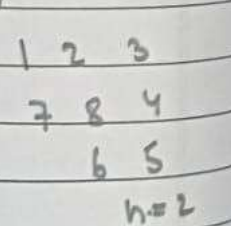 1 2 3
7 8 4
6 5
h=2